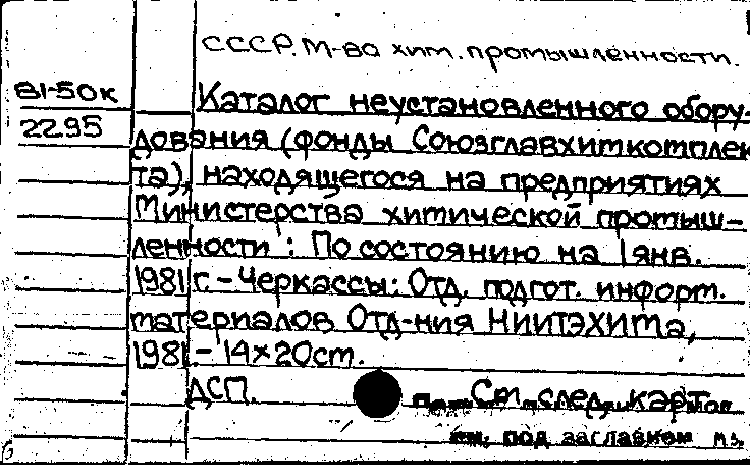 СССР. М-во хим. промышленности.
81-50к
Каталог неустановленного обору-
2295
дования (фонды Союзглавхимкомплек
та), находящегося на предприятиях
Министерства химической промыш-
ленности : По состоянию на 1 янв.
1981 г. - Черкассы: Отд. подгот. информ.
материалов Отд-ния НИИТЭХИМа,
1981. - 14×20см.
ДСП.
См. след. карт.
под заглавием